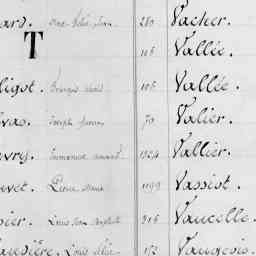 ard. 280 Vacher.
T 116 Vallée.
ligot. François 106 Vallée.
vas. Joseph 70 Valier.
vry. Emmanuel 1924 Vallier.
uvet. Pierre Marie 1199 Vassiot.
sier. Louis Jean Baptiste 916 Vaucelle.
audière. Louis 172 Vaugeois.